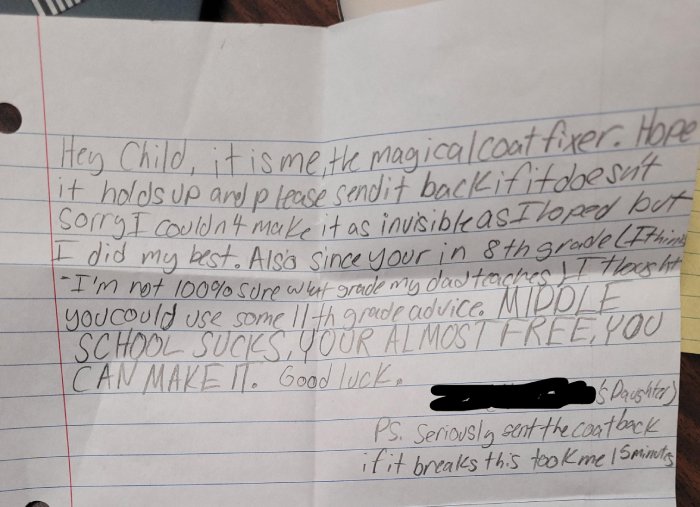 Hey Child, it is me, the magical coat fixer. Hope
it holds up and please send it back if it doesn't
Sorry I couldn't make it as invisible as I hoped but
I did my best. Also since your in 8th grade (I think
-I'm not 100% sure what grade my dad teaches) I thought
you could use some 11th grade advice. MIDDLE
SCHOOL SUCKS, YOUR ALMOST FREE, YOU
CAN MAKE IT. Good luck.
's Daughter)
Ps. Seriously sent the coat back
if it breaks this took me 15 minutes